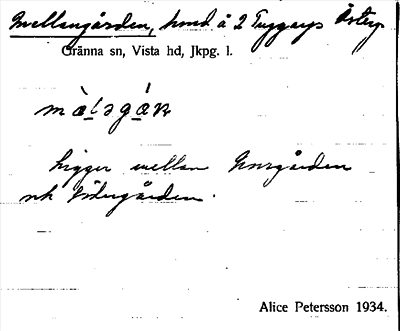 Mellangården, hmd å 2 Tuggarp Österg.
Gränna sn, Vista hd, Jkpg. l.
Ligger mellan Norrgården
och Södergården.
Alice Petersson 1934.